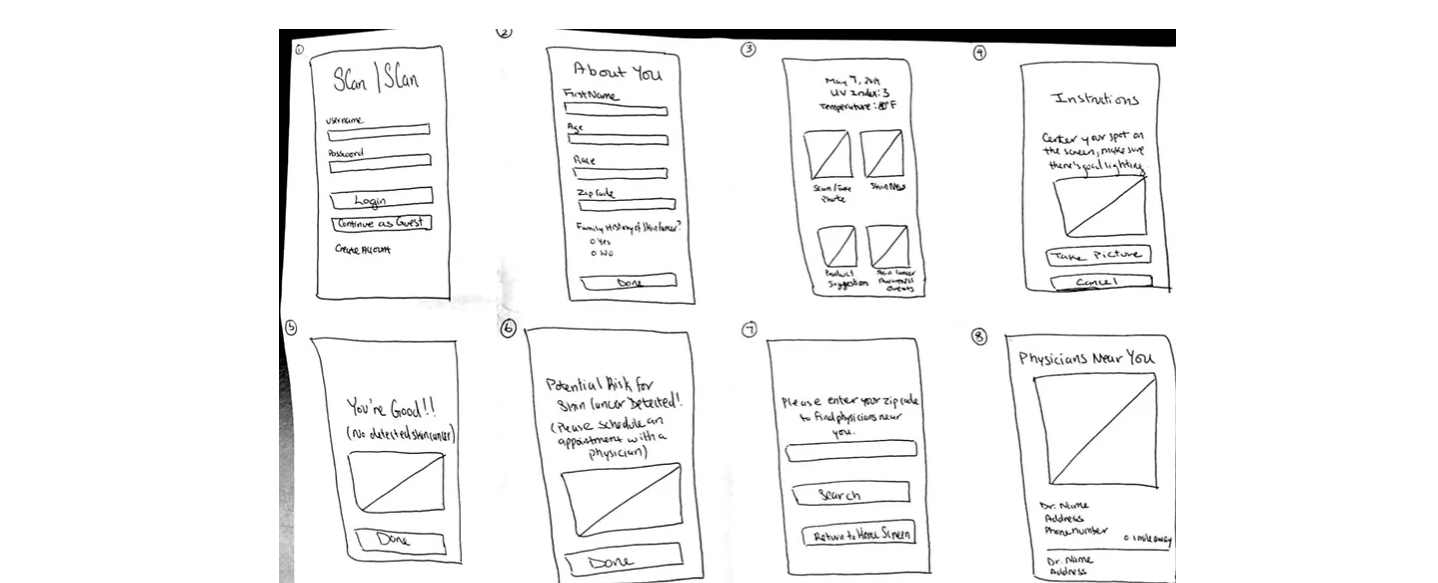 ①
SCan | SCan
username
Password
Login
Continue as Guest
Create Account
②
About You
First Name
Age
Race
Zip Code
Family History of Skin Cancer?
Yes
No
Done
③
May 7, 2019
UV Index: 3
Temperature: °F
Scan/Take
Photo
Skin
Product
Suggestion
Skin Cancer
Awareness
Events
④
Instructions
Center your spot on
the screen, make sure
there's good lighting
Take Picture
Cancel
⑤
You're Good!!
(No detected skin cancer)
Done
⑥
Potential Risk for
Skin Cancer Detected!
(Please schedule an
appointment with a
physician)
Done
⑦
Please enter your zip code
to find physicians near
you.
Search
Return to Home Screen
⑧
Physicians Near You
Dr. Name
Address
Phone number
0.1 mile away
Dr. Name
Address